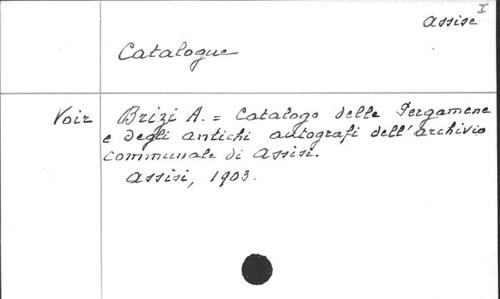 I
Assise
Catalogue
Voir Brizi A. = Catalogo delle Pergamene
e degli antichi autografi dell'archivio
communale di Assisi.
Assisi, 1903.